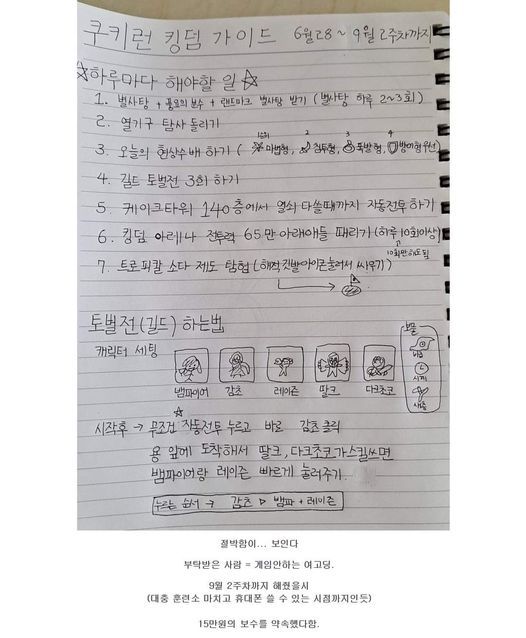 쿠키런 킹덤 가이드 6월28~9월 2주차까지
☆하루마다 해야할 일☆
1. 별사탕 + 풍요의 보수 + 랜드마크 별사탕 받기 (별사탕 하루 2~3회)
2. 열기구 탐사 돌리기
3. 오늘의 현상수배 하기 ( 1순위 마법형, 2 침투형, 3 폭발형, 4 방어형 우선)
4. 길드 토벌전 3회 하기
5. 케이크타워 140층에서 열쇠 다쓸때까지 자동전투하기
6. 킹덤 아레나 전투력 65만 아래애들 때리기 (하루 10회이상)
10회만 해도 됨
7. 트로피칼 소다 제도 탐험 (해적깃발아이콘눌러서 싸우기)
토벌전(길드) 하는법
캐릭터 세팅
뱀파이어 감초 레이즌 딸크 다크초코
보물
시계
시작후 → 무조건 자동전투 누르고 바로 감초 클릭
용 앞에 도착해서 딸크, 다크초코가 스킬쓰면
뱀파이어랑 레이즌 빠르게 눌러주기.
누르는 순서 → 감초 ▷ 뱀파 + 레이즌
절박함이... 보인다
부탁받은 사람 = 게임안하는 여고딩.
9월 2주차까지 해줬을시
(대충 훈련소 마치고 휴대폰 쓸 수 있는 시점까지인듯)
15만원의 보수를 약속했다함.